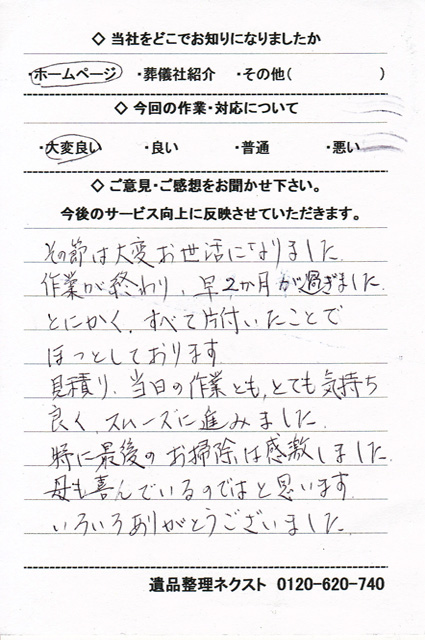 ◇ 当社をどこでお知りになりましたか
・ホームページ ・葬儀社紹介 ・その他( )
◇ 今回の作業・対応について
・大変良い ・良い ・普通 ・悪い
◇ ご意見・ご感想をお聞かせ下さい。
今後のサービス向上に反映させていただきます。
その節は大変お世話になりました.
作業が終わり、早2か月が過ぎました.
とにかく、すべて片付いたことで
ほっとしております
見積り、当日の作業とも、とても気持ち
良く、スムーズに進みました.
特に最後のお掃除は感激しました.
母も喜んでいるのではと思います.
いろいろありがとうございました.
遺品整理ネクスト 0120-620-740